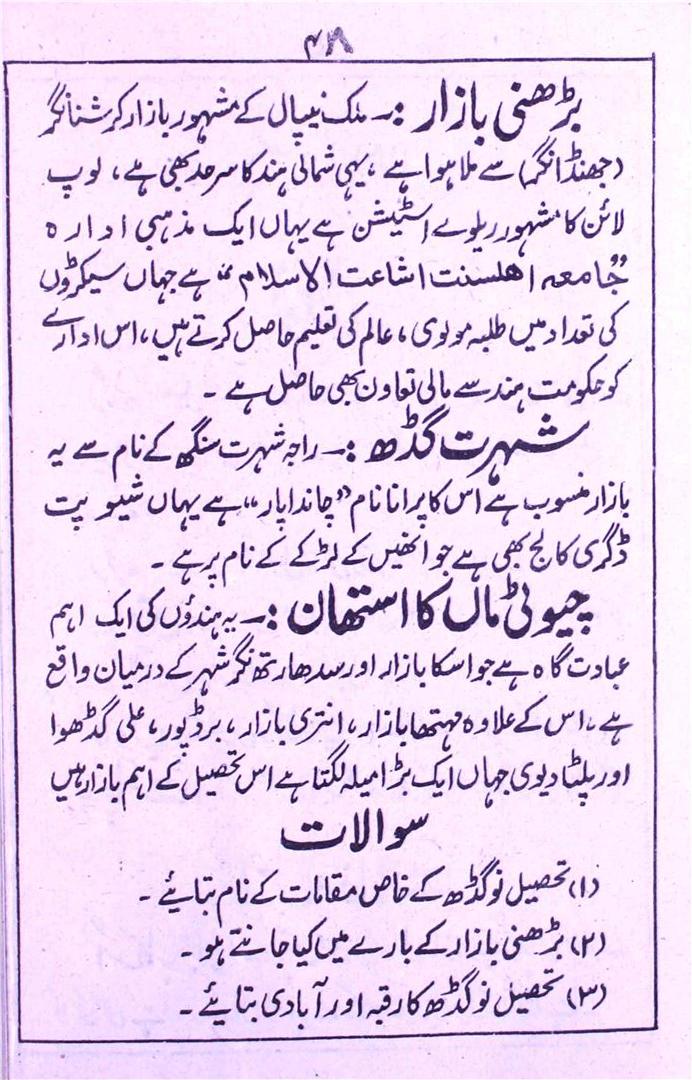 ۴۸
بڑھنی بازار :۔ ملک نیپال کے مشہور بازار کرشنا نگر
(جھنڈا نگر) سے ملا ہوا ہے ، یہی شمالی ہند کا سرحد بھی ہے ، لوپ
لائن کا مشہور ریلوے اسٹیشن ہے یہاں ایک مذہبی ادارہ
”جامعہ اھلسنت اشاعت الاسلام“ ہے جہاں سیکڑوں
کی تعداد میں طلبہ مولوی ، عالم کی تعلیم حاصل کرتے ہیں ، اس ادارے
کو حکومت ہند سے مالی تعاون بھی حاصل ہے ۔
شہرت گڈھ :۔ راجہ شہرت سنگھ کے نام سے یہ
بازار منسوب ہے اس کا پرانا نام ”چاندا پار“ ہے یہاں شیو پت
ڈگری کالج بھی ہے جو انھیں کے لڑکے کے نام پر ہے ۔
چیوٹی ماں کا استھان :۔ یہ ہندؤں کی ایک اہم
عبادت گاہ ہے جو اسکا بازار اور سدھارتھ نگر شہر کے درمیان واقع
ہے ۔ اس کے علاوہ مہتھا بازار ، انتری بازار ، برڈپور ، علی گڈھوا
اور پلٹا دیوی جہاں ایک بڑا میلہ لگتا ہے اس تحصیل کے اہم بازار ہیں
سوالات
(۱) تحصیل نوگڈھ کے خاص مقامات کے نام بتایئے ۔
(۲) بڑھنی بازار کے بارے میں کیا جانتے ہو ۔
(۳) تحصیل نوگڈھ کا رقبہ اور آبادی بتایئے ۔